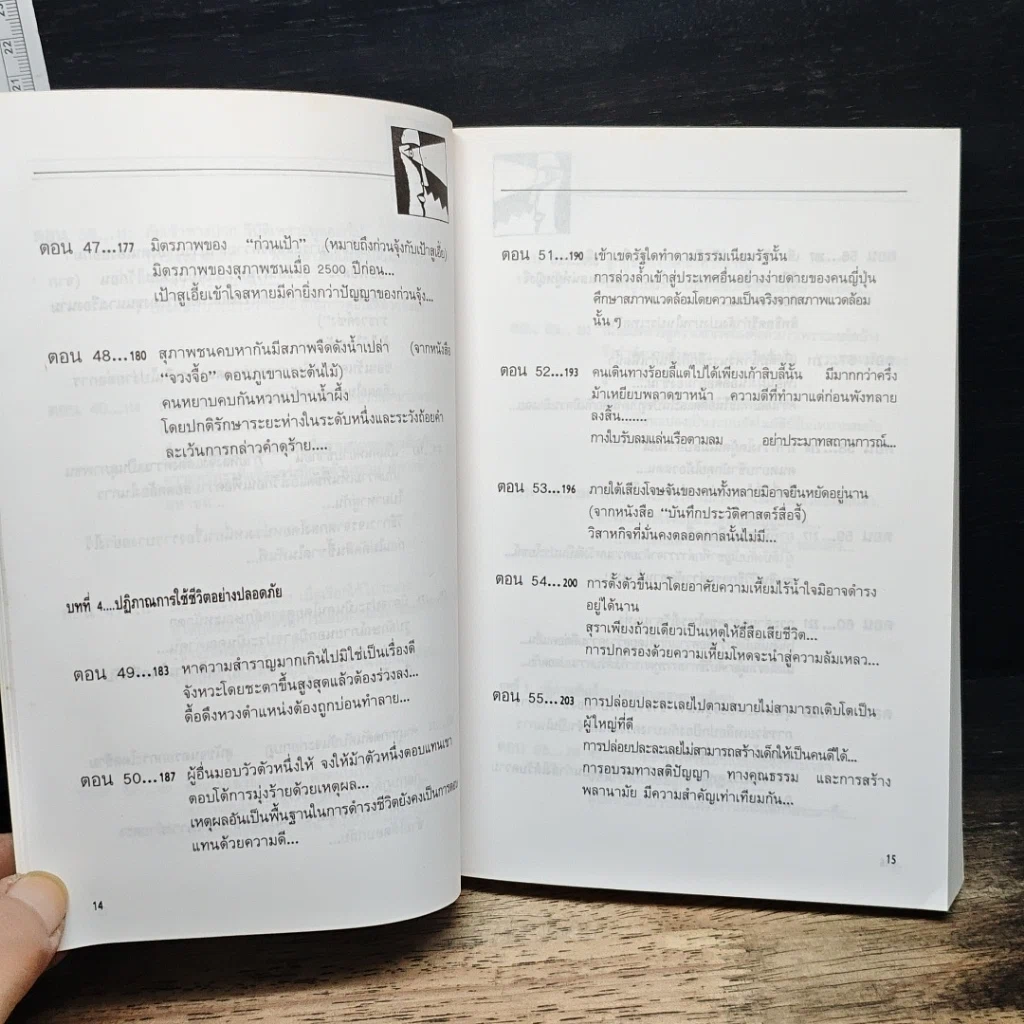 ตอน 47...177 มิตรภาพของ “ก่วนเป้า” (หมายถึงก่วนจุ้งกับเป้าสูเอี้ย)
มิตรภาพของสุภาพชนเมื่อ 2500 ปีก่อน...
เป้าสูเอี้ยเข้าใจสหายมีค่ายิ่งกว่าปัญญาของก่วนจุ้ง...
ตอน 48...180 สุภาพชนคบหากันมีสภาพจืดดังน้ำเปล่า (จากหนังสือ
“จวงจื้อ” ตอนภูเขาและต้นไม้)
คนหยาบคบกันหวานปานน้ำผึ้ง
โดยปกติรักษาระยะห่างในระดับหนึ่งและระวังถ้อยคำ
ละเว้นการกล่าวคำดุร้าย....
บทที่ 4....ปฏิภาณการใช้ชีวิตอย่างปลอดภัย
ตอน 49...183 หาความสำราญมากเกินไปมิใช่เป็นเรื่องดี
จังหวะโดยชะตาขึ้นสูงสุดแล้วต้องร่วงลง...
ดื้อดึงหวงตำแหน่งต้องถูกบ่อนทำลาย...
ตอน 50...187 ผู้อื่นมอบวัวตัวหนึ่งให้ จงให้ม้าตัวหนึ่งตอบแทนเขา
ตอบโต้การมุ่งร้ายด้วยเหตุผล...
เหตุผลอันเป็นพื้นฐานในการดำรงชีวิตยังคงเป็นการตอบ
แทนด้วยความดี...
14
22
21
ตอน 51...190 เข้าเขตรัฐใดทำตามธรรมเนียมรัฐนั้น
การล่วงล้ำเข้าสู่ประเทศอื่นอย่างง่ายดายของคนญี่ปุ่น
ศึกษาสภาพแวดล้อมโดยความเป็นจริงจากสภาพแวดล้อม
นั้น ๆ
ตอน 52...193 คนเดินทางร้อยลี้แต่ไปได้เพียงเก้าสิบลี้นั้น มีมากกว่าครึ่ง
ม้าเหยียบพลาดขาหน้า ความดีที่ทำมาแต่ก่อนพังทลาย
ลงสิ้น.......
กางใบรับลมแล่นเรือตามลม อย่าประมาทสถานการณ์...
ตอน 53...196 ภายใต้เสียงโจษจันของคนทั้งหลายมิอาจยืนหยัดอยู่นาน
(จากหนังสือ “บันทึกประวัติศาสตร์สื่อจี้)
วิสาหกิจที่มั่นคงตลอดกาลนั้นไม่มี...
ตอน 54...200 การตั้งตัวขึ้นมาโดยอาศัยความเหี้ยมไร้น้ำใจมิอาจดำรง
อยู่ได้นาน
สุราเพียงถ้วยเดียวเป็นเหตุให้อี๋สือเสียชีวิต...
การปกครองด้วยความเหี้ยมโหดจะนำสู่ความล้มเหลว...
ตอน 55...203 การปล่อยปละละเลยไปตามสบายไม่สามารถเติบโตเป็น
ผู้ใหญ่ที่ดี
การปล่อยปละละเลยไม่สามารถสร้างเด็กให้เป็นคนดีได้...
การอบรมทางสติปัญญา ทางคุณธรรม และการสร้าง
พลานามัย มีความสำคัญเท่าเทียมกัน...
15